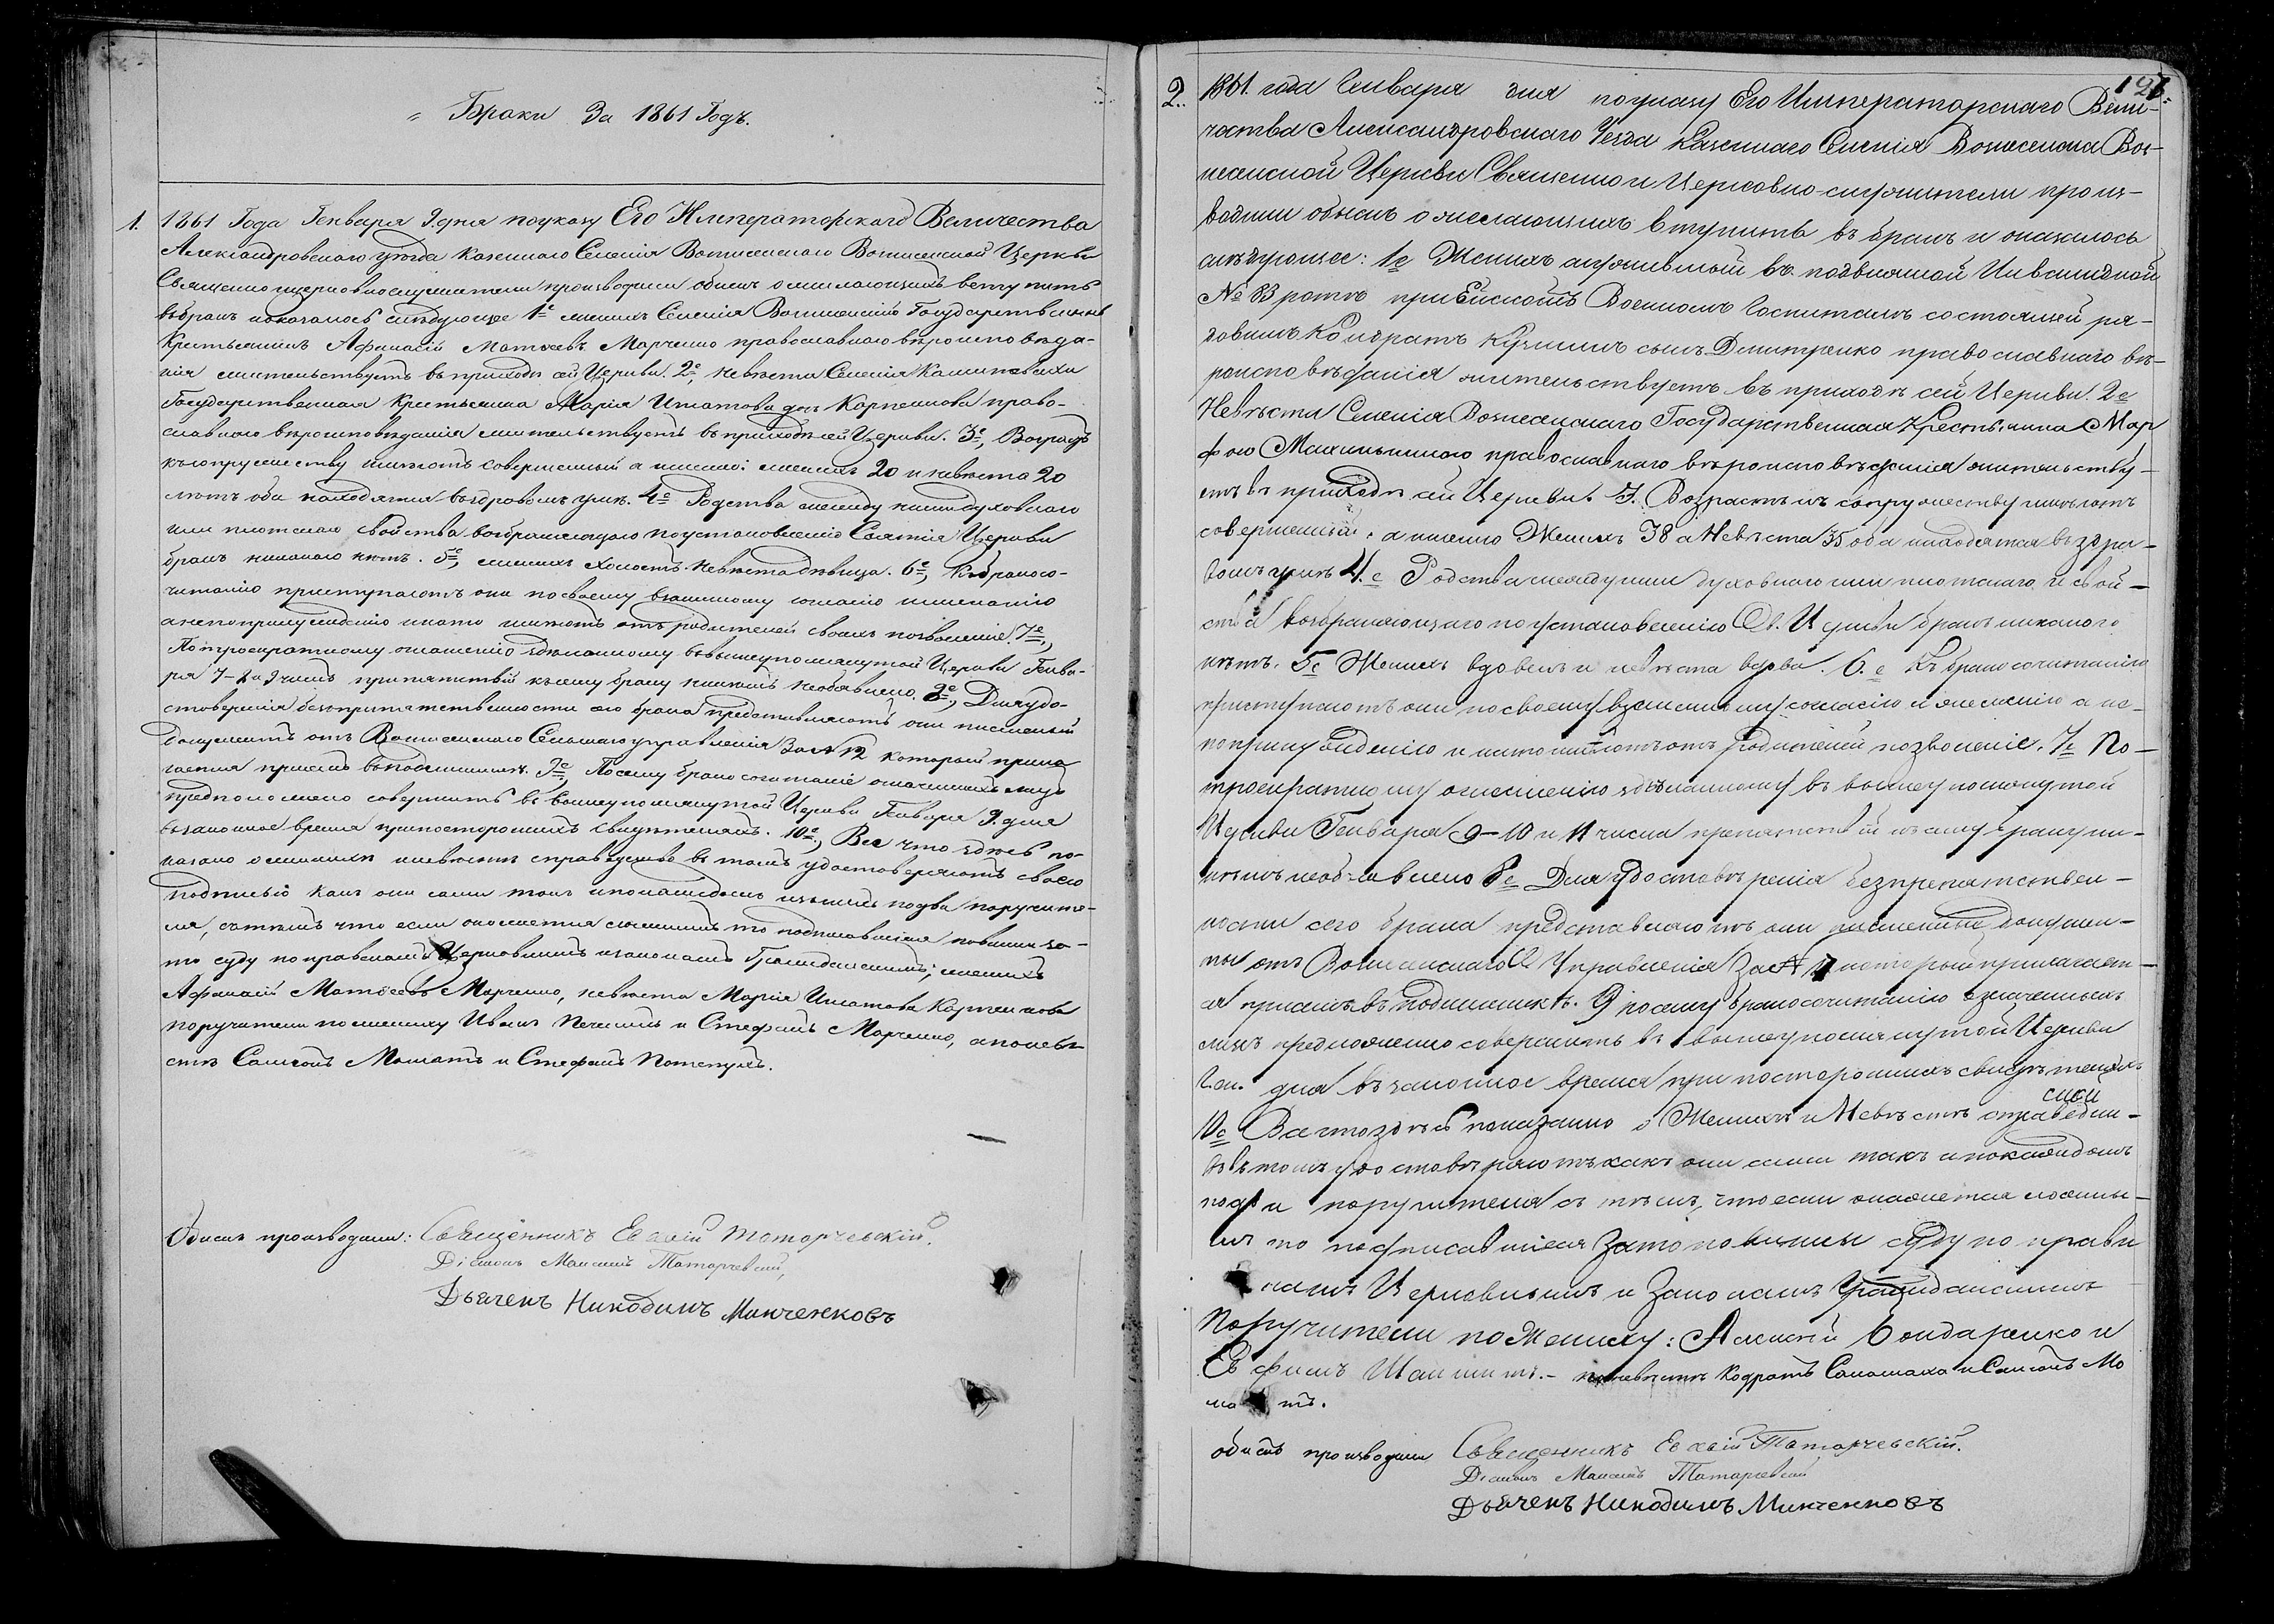 Браки За 1861 Годъ.
1. 1861 Года Генваря 9 дня по указу Его Императорскаго Величества
Александровскаго уѣзда казеннаго Селенія Вознесенскаго Вознесенской Церкви
Священноицерковнослужители производили обыскъ о желающихъ вступить
въ бракъ и оказалось слѣдующее 1е женихъ Селенія Вознесенскаго Государственный
Крестьянинъ Афанасій Матѳеевъ Марченко православнаго вѣроисповѣда-
нія жительствуетъ въ приходѣ сей Церкви. 2е, невѣста Селенія
Государственная Крестьянка Марія Игнатова дочь Карпенкова право-
славнаго вѣроисповѣданія жительствуетъ въ приходѣ сей Церкви. 3е, Возрастъ
къ супружеству имѣютъ совершенный а именно: женихъ 20 и невѣста 20
лѣтъ оба находятся въ здравомъ умѣ. 4е Родства между ними духовнаго
или плотскаго свойства возбраняющаго по установленію Святыя Церкви
бракъ никакого нѣтъ. 5е, женихъ холостъ невѣста дѣвица. 6е, Къ бракосо-
читанію приступаютъ они по своему взаимному согласію и желанію
а не по принужденію и на то имѣютъ отъ родителей своихъ позволеніе 7е,
По троекратному оглашенію сдѣланному въ вышеупомянутой Церкви Генва-
ря 7-8 и 9 чиселъ препятствій къ сему браку никакихъ необъявлено. 8е, Для удо-
стовѣренія безпрепятственности сего брака представляютъ они письменный
документъ отъ Вознесенскаго Сельскаго управленія За № 12 который прила
гается при семъ въ подлинникѣ. 9е, Посему бракосочитаніе означенныхъ лицъ
предположено совершить въ вышеупомянутой Церкви Генваря 9 дня
въ законное время при постороннихъ свидѣтеляхъ. 10е, Все что здѣсь по-
казано о женихѣ и невѣстѣ справедливо въ томъ удостовѣряютъ своею
подписью какъ они сами такъ и по каждомъ изъ нихъ по два поручите-
ля, съ тѣмъ что если окажется ложнымъ то подписавшіеся повинны за-
то суду по правиламъ Церковнымъ и законамъ Гражданскимъ; женихъ
Афанасій Матѳеевъ Марченко, невѣста Марія Игнатова Карпенкова
поручители по жениху Иванъ и Стефанъ Марченко, а по невѣ-
стѣ Самсонъ Момотъ и Стефанъ Потапухъ.
Обыскъ производили: Священникъ Евгеній Татарчевскій.
Діаконъ Максимъ Татарчевскій,
Дьячекъ Никодимъ Минченковъ
127.
2. 1861. года Генваря дня по указу Его Императорскаго Вели-
чества Александровскаго Уезда Казеннаго Селенія Вознесенска Воз-
несенской Церкви Священно и Церковно-служители произ-
водили обыскъ о желающихъ вступить въ бракъ и оказалось
слѣдующее: 1е Женихъ служившый въ подвижной Инвалидной
№ 33 ротѣ при Ейскомъ Военномъ Госпиталѣ состоящей ря-
довымъ Кондратъ Кузминъ сынъ Дмитренко православнаго вѣ-
роисповѣданія жительствуетъ въ приходѣ сей Церкви. 2е
Невѣста Селенія Вознесенскаго Государственная Крестьянка Мар
православнаго вѣроисповѣданія жительству-
етъ въ приходѣ сей Церкви. 3. Возрастъ къ супружеству имѣютъ
совершенный, а именно Женихъ 38 а Невѣста 35 оба находятся въ здра-
вомъ умѣ 4.е Родства между ними духовнаго или плотскаго и свой-
ства возбраняющаго по установленію Св. Церкви бракъ никакого
нѣтъ. 5е Женихъ вдовецъ и невѣста вдова. 6.е Къ бракосочитанію
приступаютъ они по своему взаимному согласію и желанію а не-
по принужденію и на то имѣютъ отъ родителей позволеніе. 7е По-
троекратному оглашенію здѣланному въ вышеупомянутой
Церкви Генваря 9-10 и 11 числа препятствій къ сему браку ни-
какихъ необъявлено 8е Для удостовѣренія безпрепятствен-
ности сего брака представляютъ они письменный докумен-
ты отъ Вознесенскаго С Управленія За № который прилагает-
ся при семъ въ подлинникѣ. 9 посему бракосочитанію означенныхъ
лицъ предложенно совершить въ вышеупомянутой Церкви
Ген. дня въ законное время при постороннихъ свидѣтеляхъ
10е Все что здѣсь показанно о Женихѣ и Невѣстѣ справедли-
въ въ томъ удостовѣряютъ какъ они сами такъ и по каждомъ
по два поручителя съ тѣмъ, что если окажется ложны-
мъ то подписавшіеся за то повинны суду по прави
ламъ Церковнымъ и Законамъ Гражданскимъ
Поручители по Жениху: Алексѣй Бондаренко и
Ефимъ - по невѣстѣ Кодратъ Саламаха и Самсонъ Мо
мотъ.
обыскъ производили Священникъ Евгеній Татарчевскій.
Діаконъ Максимъ Татарчевскій
Дьячекъ Никодимъ Минченковъ